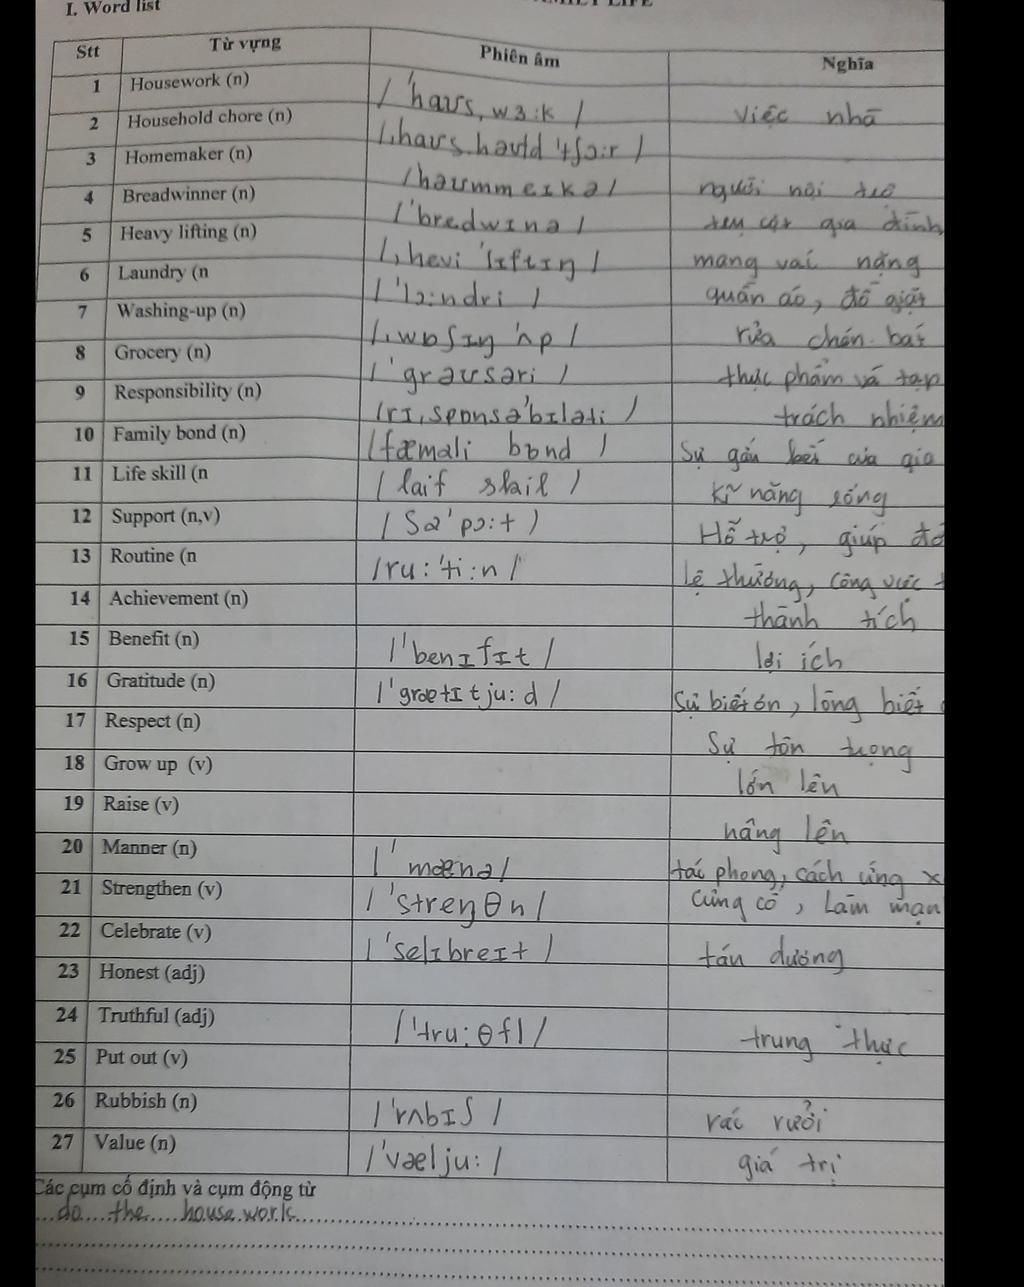 I. Word list
LIFE
Stt Từ vựng Phiên âm Nghĩa
1 Housework (n) /ˈhaʊsˌwɜːk/ việc nhà
2 Household chore (n) /ˌhaʊshəʊld ˈtʃɔːr/
3 Homemaker (n) /həʊmmeɪkə/ người nội trợ
4 Breadwinner (n) /ˈbredwɪnə/ trụ cột gia đình
5 Heavy lifting (n) /ˌhevi ˈlɪftɪŋ/ mang vác nặng
6 Laundry (n /ˈlɔːndri/ quần áo, đồ giặt
7 Washing-up (n) /ˌwɒʃɪŋ ˈʌp/ rửa chén bát
8 Grocery (n) /ˈgrəʊsəri/ thực phẩm và tạp
9 Responsibility (n) /rɪˌspɒnsəˈbɪləti/ trách nhiệm
10 Family bond (n) /fæmali bɒnd/ Sự gắn kết của gia
11 Life skill (n /laif skil/ kĩ năng sống
12 Support (n,v) /səˈpɔːt/ Hỗ trợ, giúp đỡ
13 Routine (n /ruːˈtiːn/ lệ thường, công việc t
14 Achievement (n) thành tích
15 Benefit (n) /ˈbenɪfɪt/ lợi ích
16 Gratitude (n) /ˈgrætɪtjuːd/ Sự biết ơn, lòng biết
17 Respect (n) Sự tôn trọng
18 Grow up (v) lớn lên
19 Raise (v) nâng lên
20 Manner (n) /ˈmænə/ tác phong, cách ứng x
21 Strengthen (v) /ˈstreŋθn/ củng cố, Làm mạn
22 Celebrate (v) /ˈselɪbreɪt/ tán dương
23 Honest (adj)
24 Truthful (adj) /ˈtruːθfl/ trung thực
25 Put out (v)
26 Rubbish (n) /ˈrʌbɪʃ/ rác rưởi
27 Value (n) /ˈvæljuː/ giá trị
Các cụm cố định và cụm động từ
do the housework